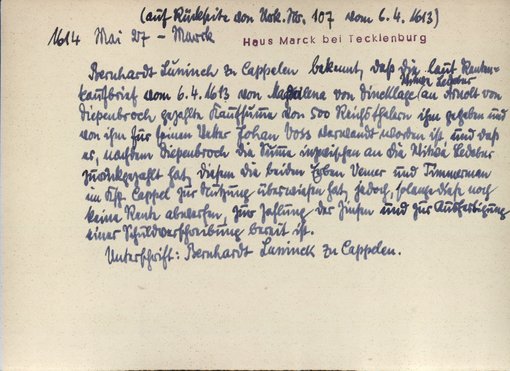 (auf Rückseite von Urk. Nr. 107 vom 6.4.1613)
1614 Mai 27 – Marck
Haus Marck bei Tecklenburg
Bernhardt Luninck zu Cappelen bekennt, daß die laut Renten-
Witwe Ledebur
kaufbrief vom 6.4.1613 von Magdalena von Dincklage (an Arnolt von
Diepenbroch gezahlte Kaufsumme von 500 Reichsthalern ihm gegeben und
von ihm für seinen Vetter Johan Voss verwandt worden ist, und daß
er, nachdem Diepenbroch die Summe inzwischen an die Witwe Ledebur
zurückgezahlt hat, diesem die beiden Erben Vemer und Timmerman
im Ksp. Cappel zur Nutzung überwiesen hat, jedoch, solange diese noch
keine Rente abwerfen, zur Zahlung der Zinsen und zur Ausfertigung
einer Schuldverschreibung bereit ist.
Unterschrift: Bernhardt Luninck zu Cappelen.